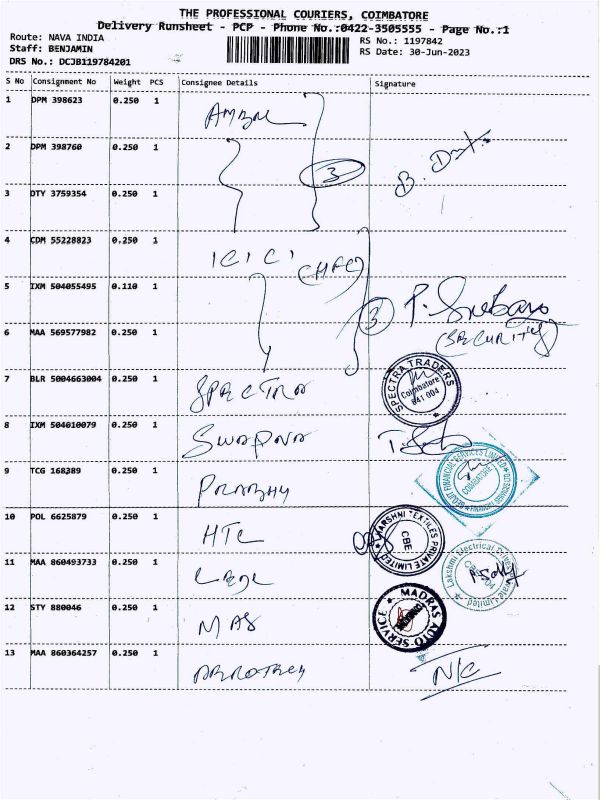 THE PROFESSIONAL COURIERS, COIMBATORE
Delivery Runsheet - PCP - Phone No.:0422-3505555 - Page No.:1
Route: NAVA INDIA
Staff: BENJAMIN
DRS No.: DCJB119784201
RS No.: 1197842
RS Date: 30-Jun-2023
S No Consignment No Weight PCS Consignee Details Signature
1 DPM 398623 0.250 1
2 DPM 398760 0.250 1
3 DTY 3759354 0.250 1
3
4 CDM 55228823 0.250 1 ICICI (HFC)
5 IXM 504055495 0.110 1
3
6 MAA 569577982 0.250 1 (SECURITY)
7 BLR 5004663004 0.250 1 SPECTRA SPECTRA TRADERS Coimbatore 641 004
8 IXM 504010079 0.250 1 SWAPNA
9 TCG 168389 0.250 1 PRABHU COIMBATORE
10 POL 6625879 0.250 1 HTC TEXTILES PRIVATE LIMITED CBE
11 MAA 860493733 0.250 1 Lakshmi Electrical
12 STY 880046 0.250 1 MAS MADRAS AUTO SERVICE
13 MAA 860364257 0.250 1 N/C